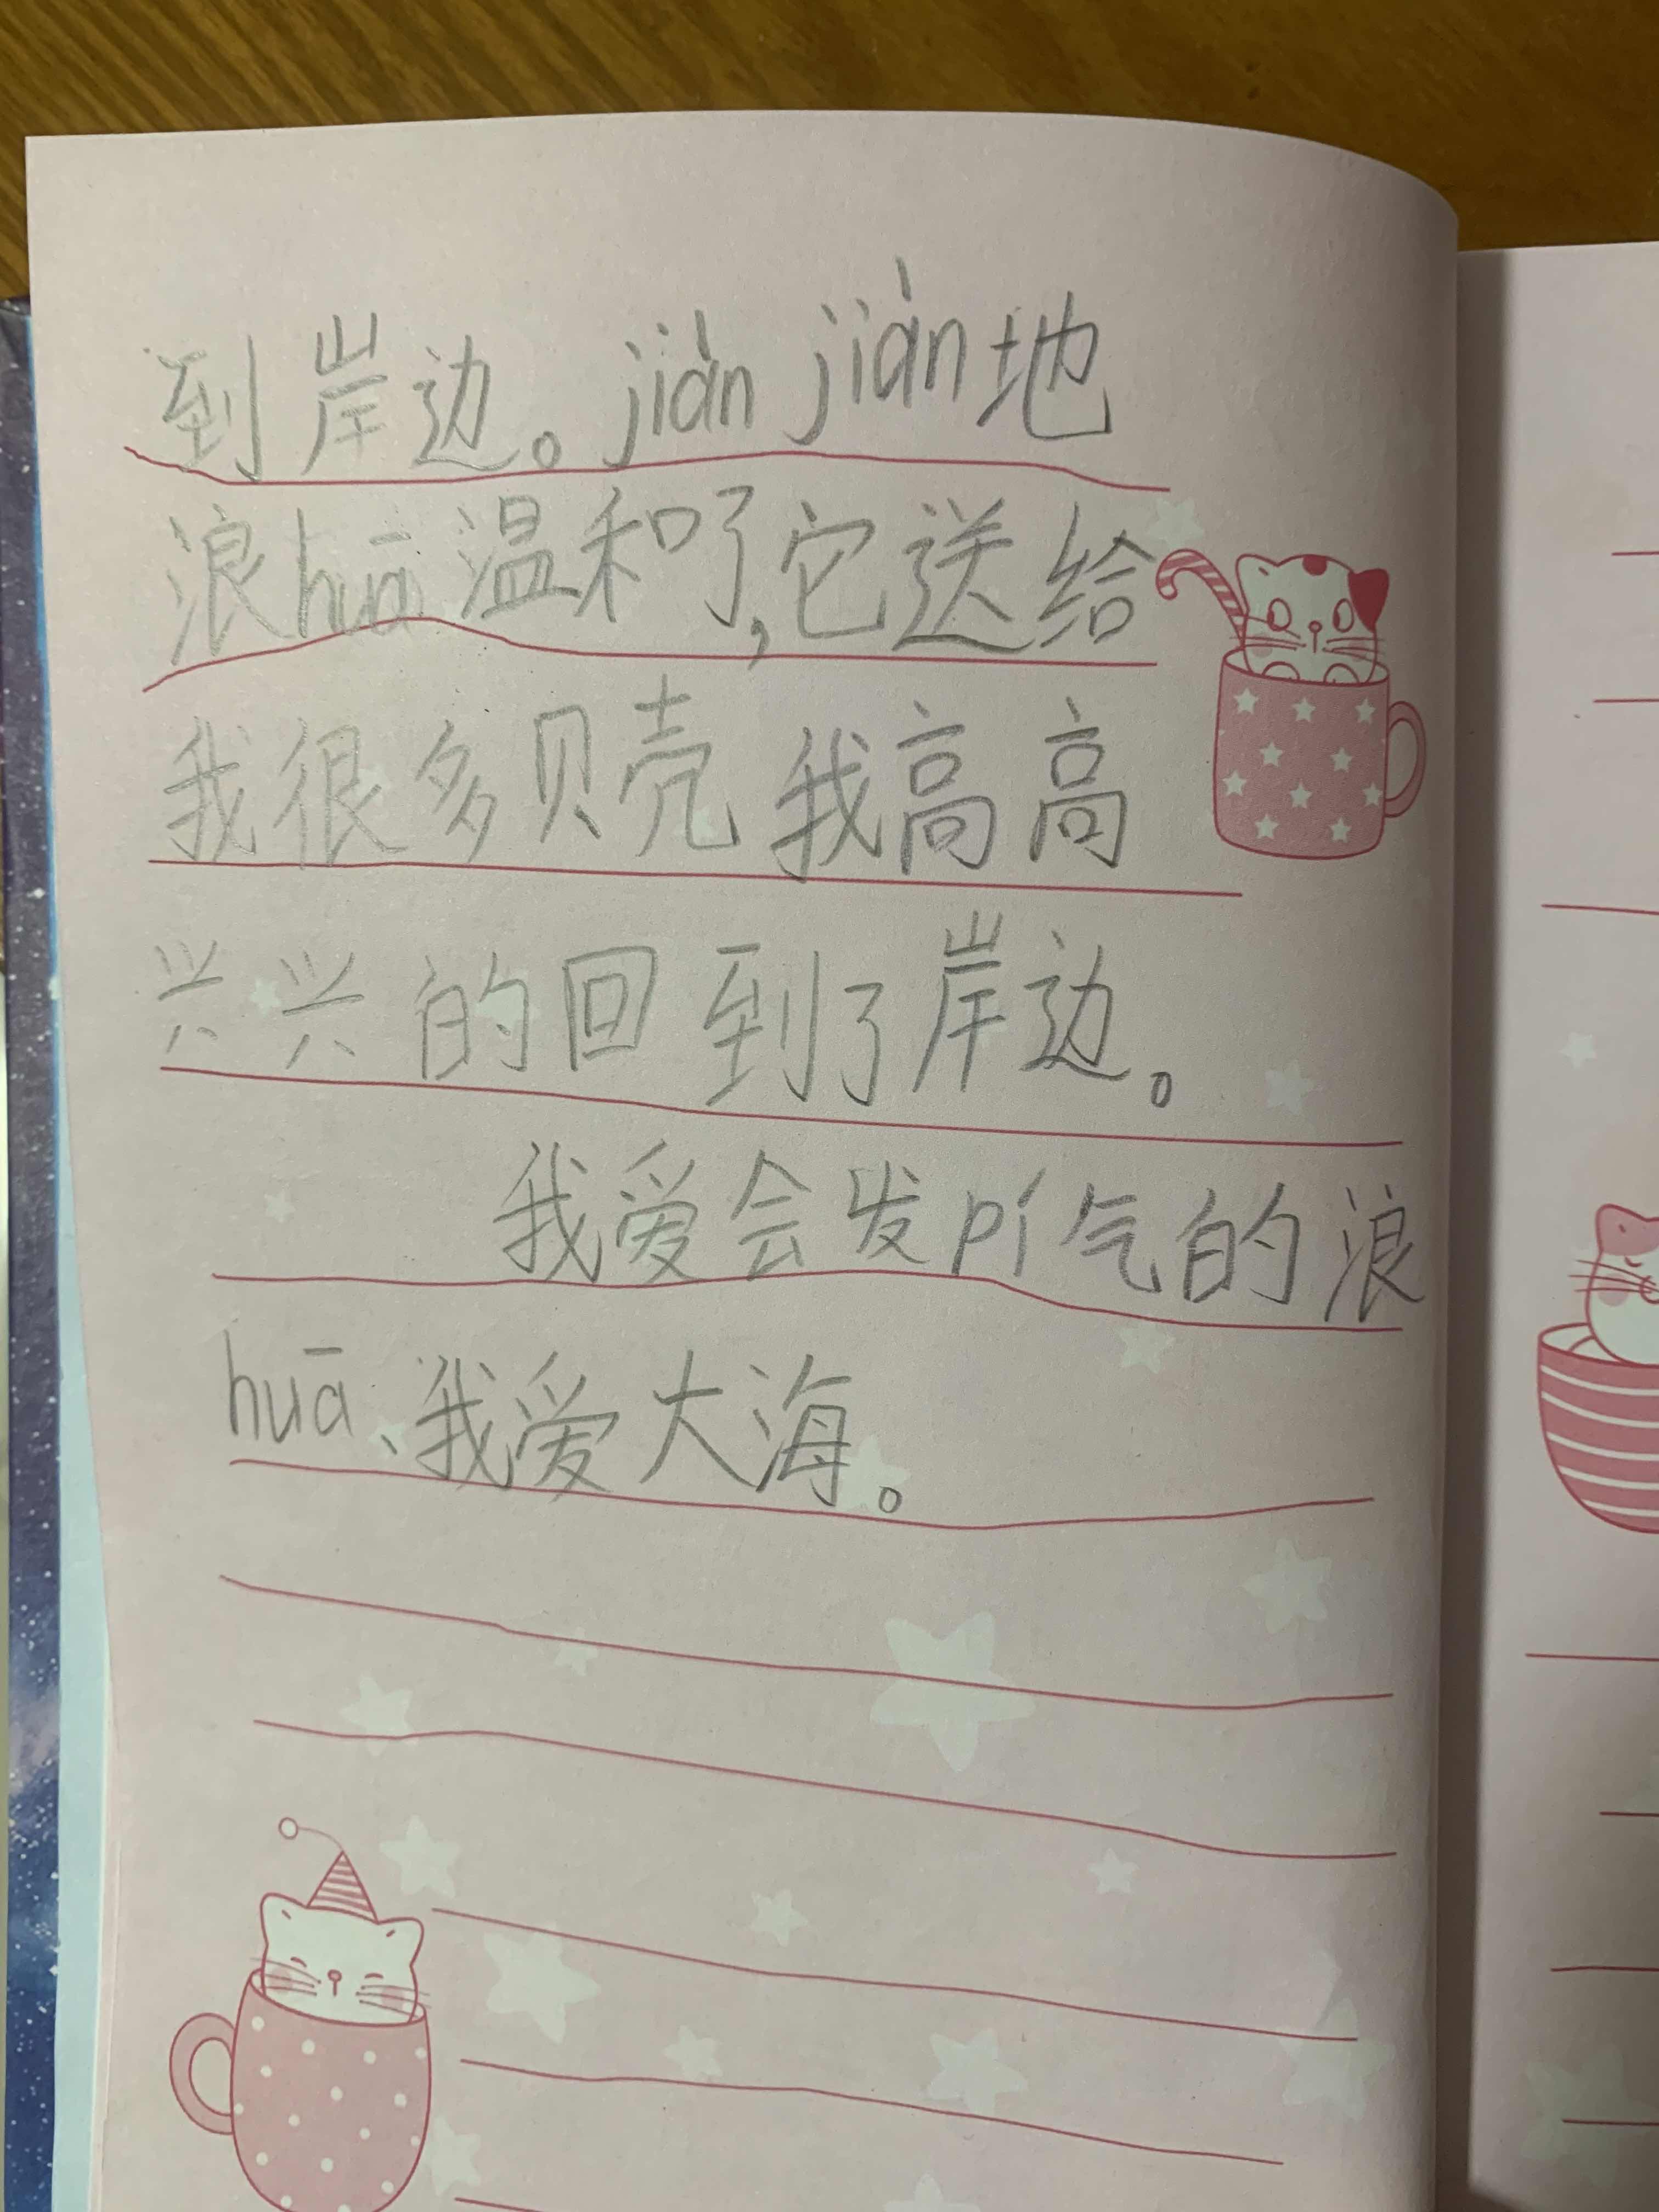 到岸边。jiàn jiàn地
浪huā温和了,它送给
我很多贝壳 我高高
兴兴的回到了岸边。
我爱会发pí气的浪
huā、我爱大海。